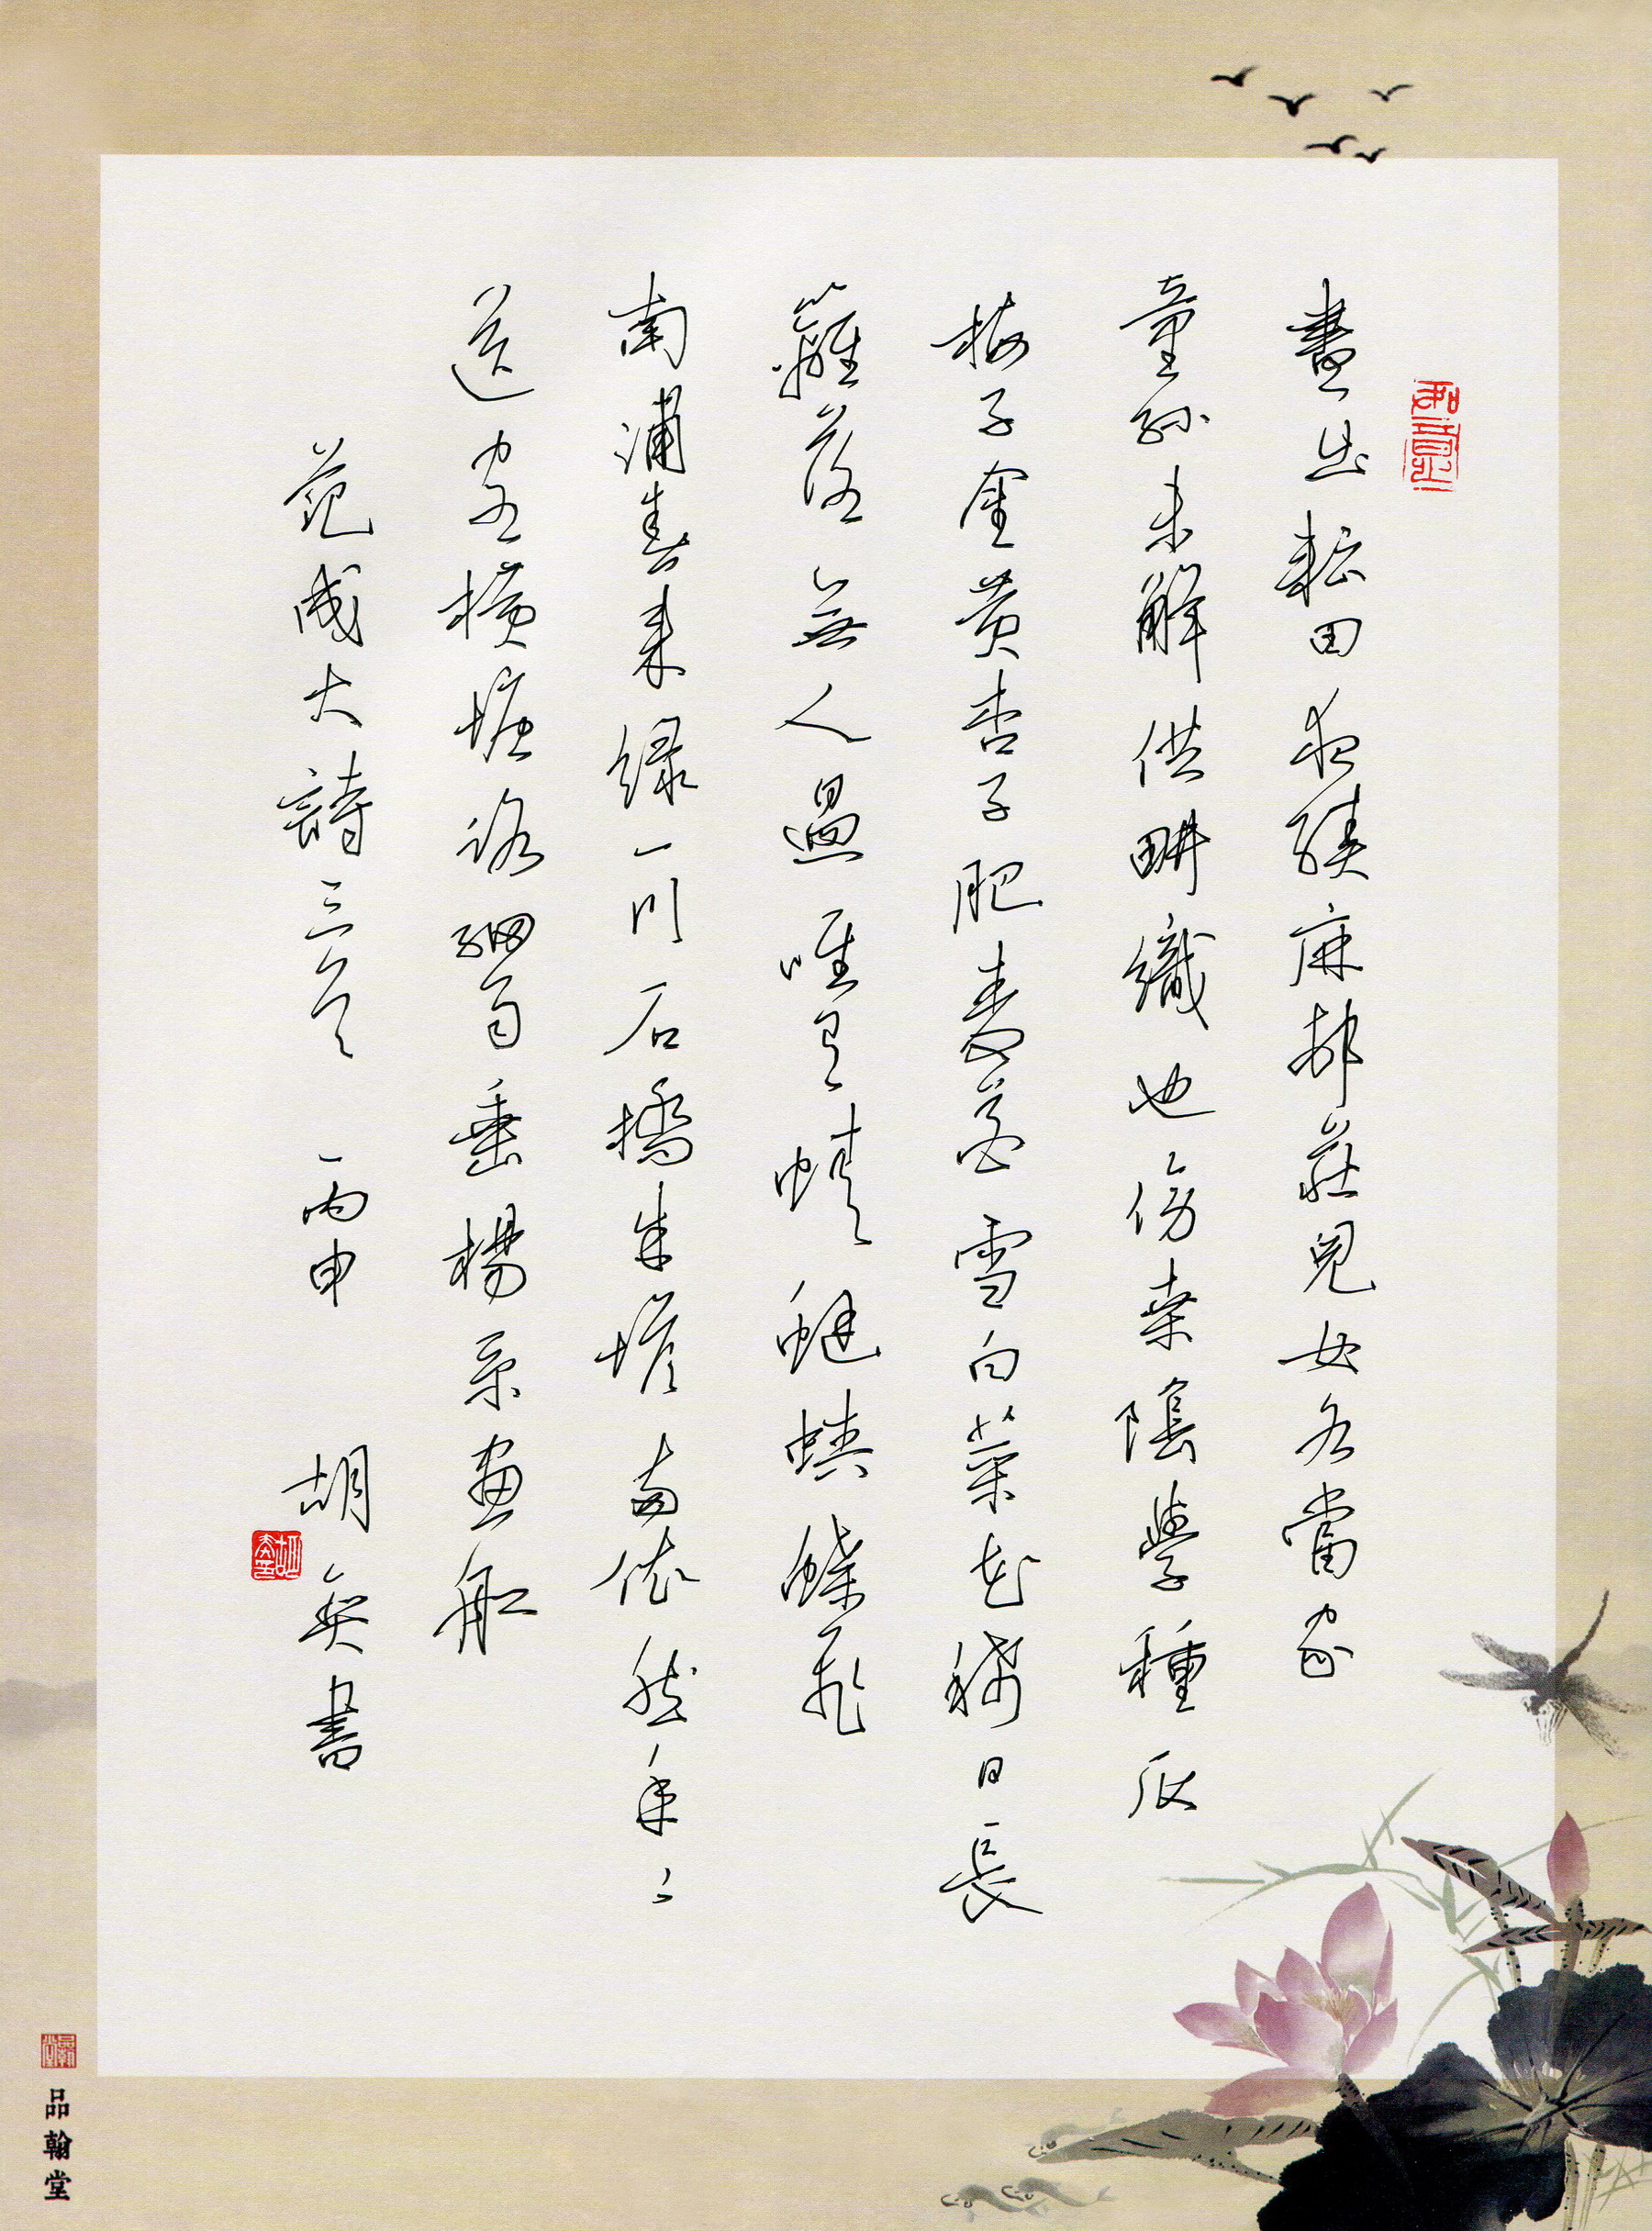 晝出耘田夜績麻邨莊兒女各當家
童孫未解供畊織也傍桑陰學種瓜
梅子金黃杏子肥麥花雪白菜花稀日長
籬落無人過唯有蜻蜓蛺蝶飛
南浦春來綠一川石橋朱塔兩依然年〻
送客橫塘路細雨垂楊系畫船
范成大詩三首 丙申 胡 書
品翰堂